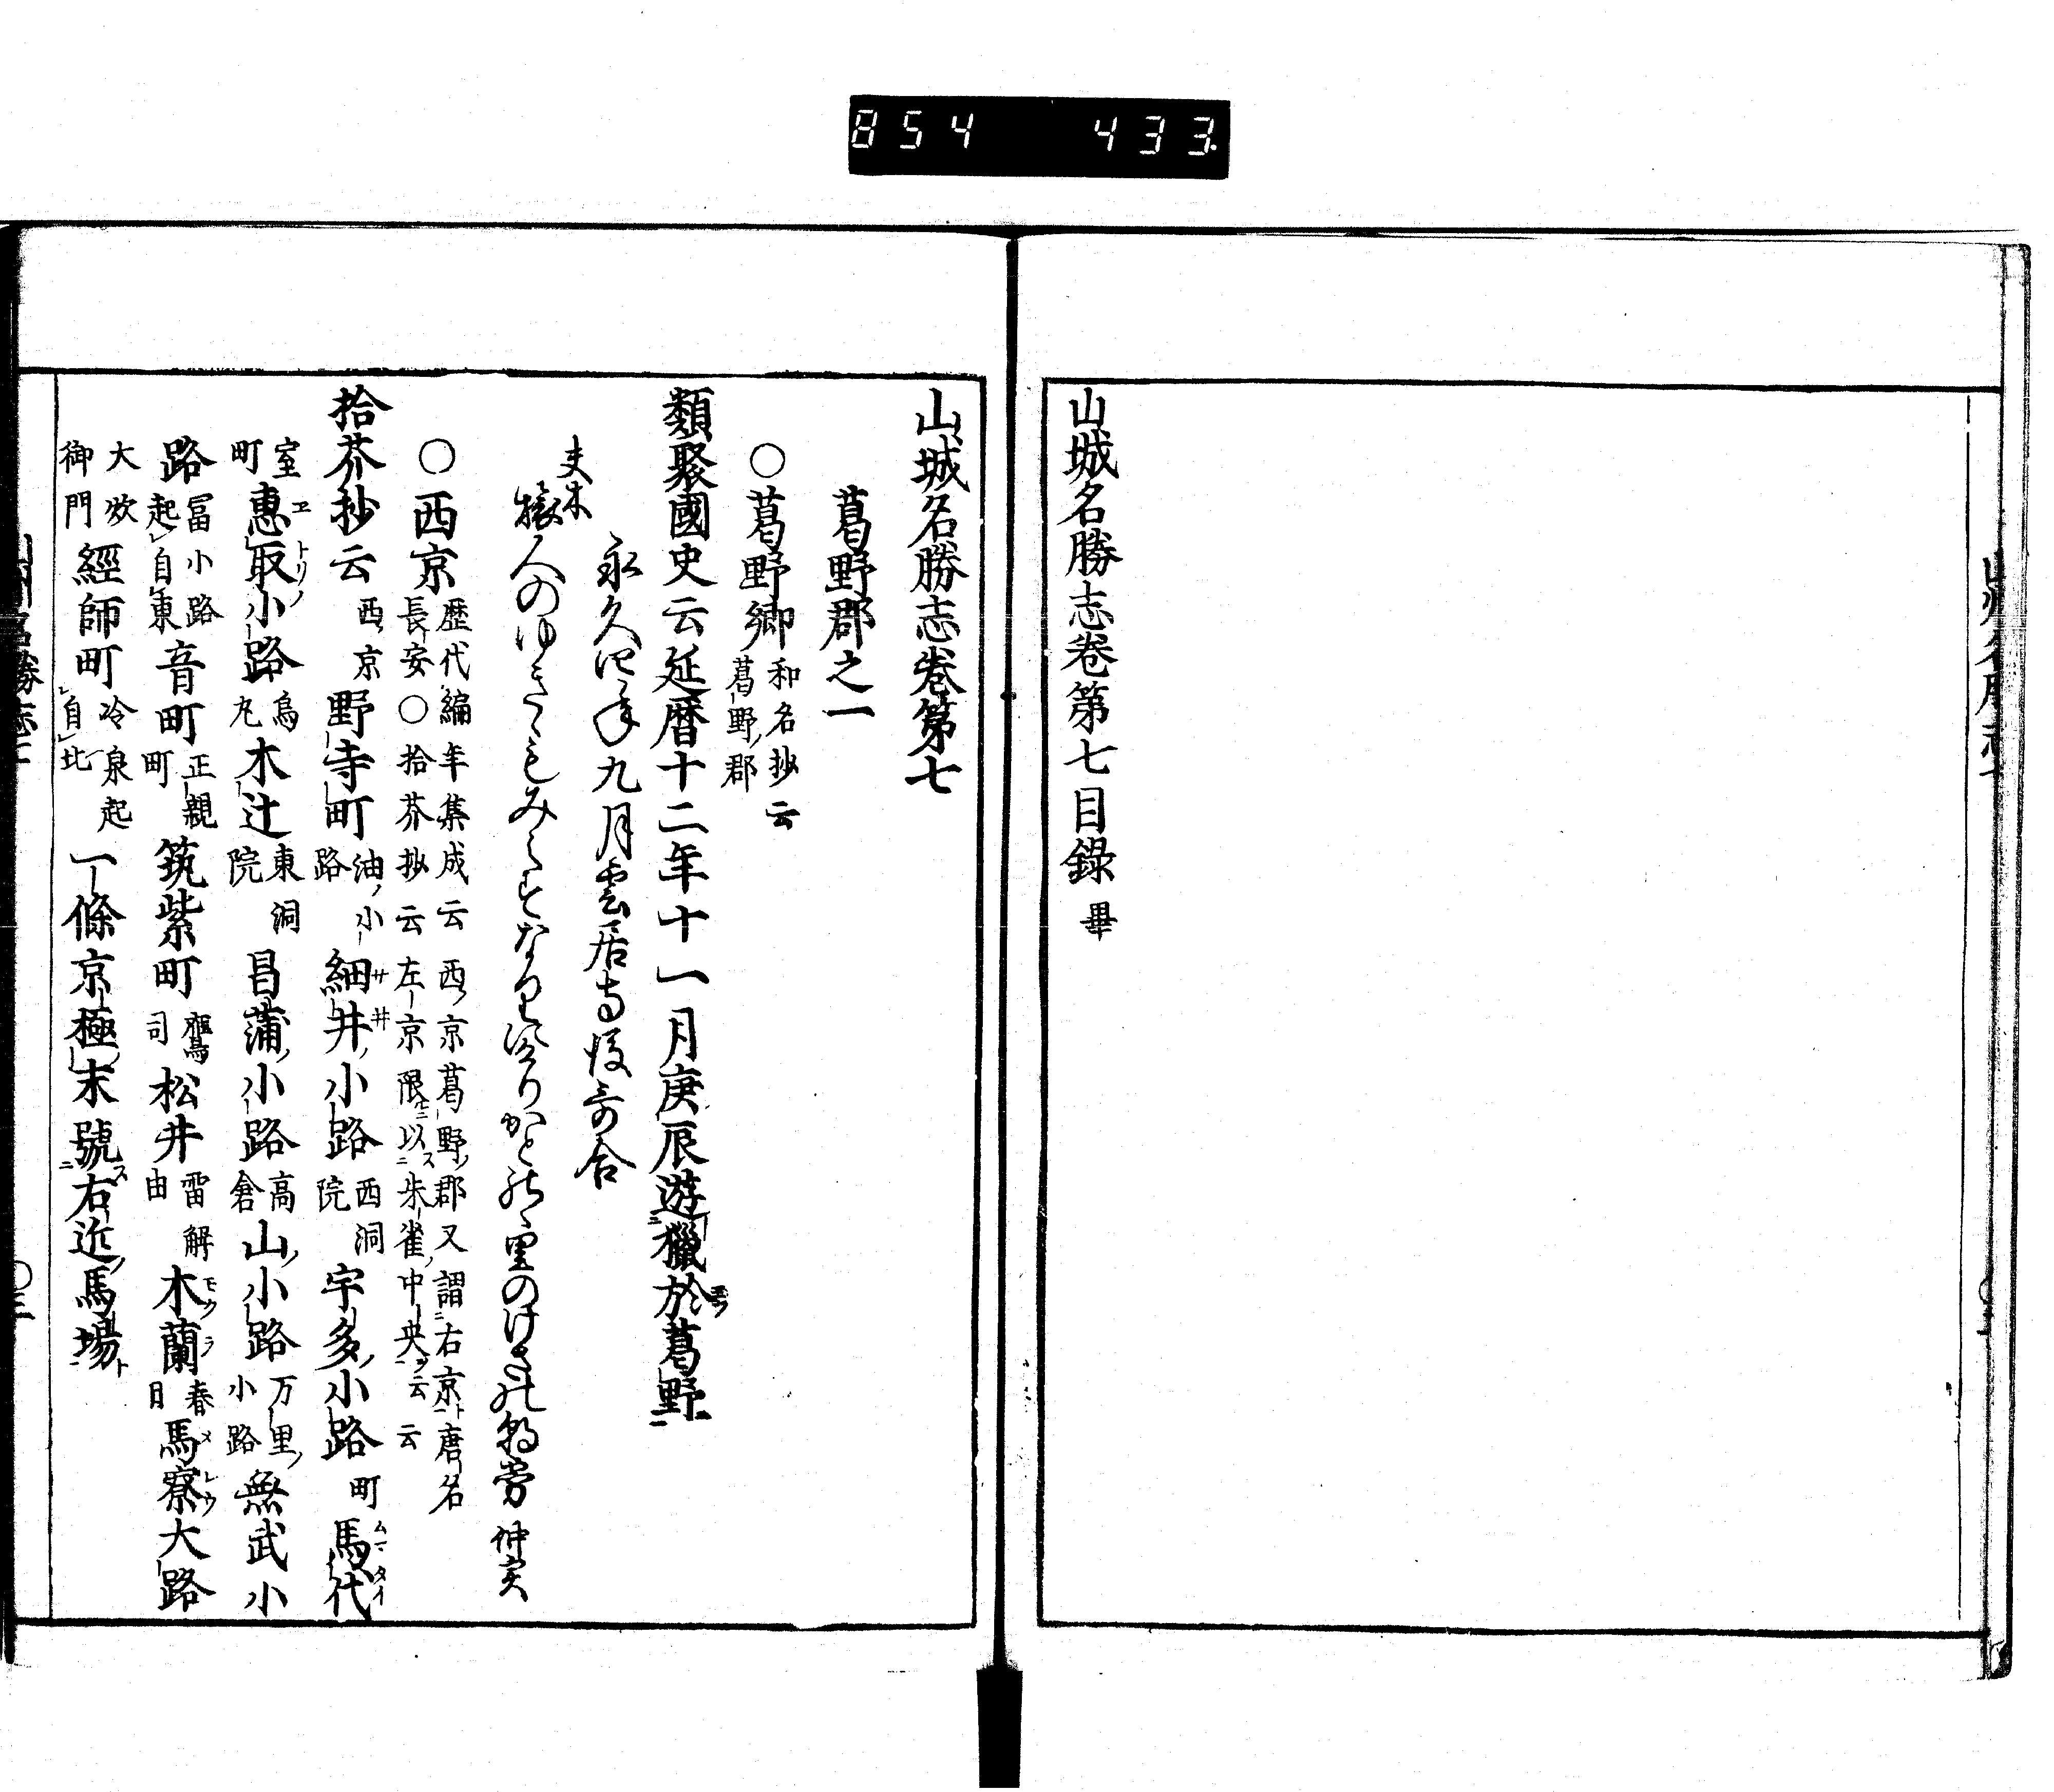 854 433.
山城名勝志卷第七目錄 畢
山城名勝志卷第七
葛野郡之一
○葛野鄉 和名抄云葛野郡
類聚國史云延暦十二年十一月庚辰遊獵於葛野
永久四年九月雲居寺後哥合
夫木
人のゆきゝも
里のけさの朝 仲実
○西京 歴代編年集成云西京葛野郡又謂右京唐名長安○拾芥抄云左京限以朱雀中央云云
拾芥抄云 西京 野寺町 油小路 細井小路 西洞院 宇多小路 町 馬代
室町 惠取小路 烏丸 木辻 東洞院 昌蒲小路 高倉 山小路 万里小路 無武小
路 冨小路起自東 音町 正親町 筑紫町 鷹司 松井 由 木蘭 春日 馬寮大路
大炊御門 經師町 冷泉起自北 一條京極末號右近馬場